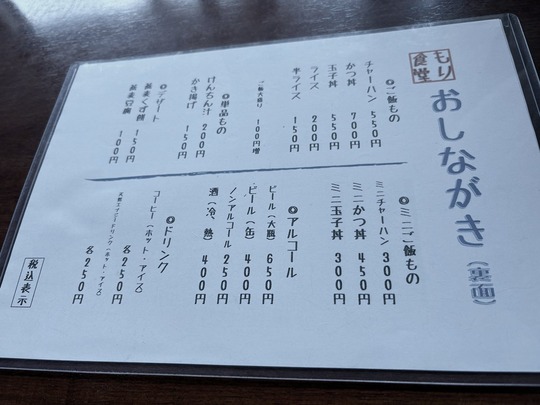 もり食堂
おしながき(裏面)
◎ご飯もの
チャーハン 550円
かつ丼 700円
玉子丼 550円
ライス 200円
半ライス 150円
ご飯大盛り 100円増
◎単品もの
けんちん汁 200円
かき揚げ 150円
◎デザート
蕎麦くず餅 150円
蕎麦豆腐 100円
◎ミニご飯もの
ミニチャーハン 300円
ミニかつ丼 450円
ミニ玉子丼 300円
◎アルコール
ビール(大瓶) 650円
ビール(缶) 400円
ノンアルコール 250円
酒(冷、熱) 400円
◎ドリンク
コーヒー(ホット・アイス) 各250円
各250円
税込表示